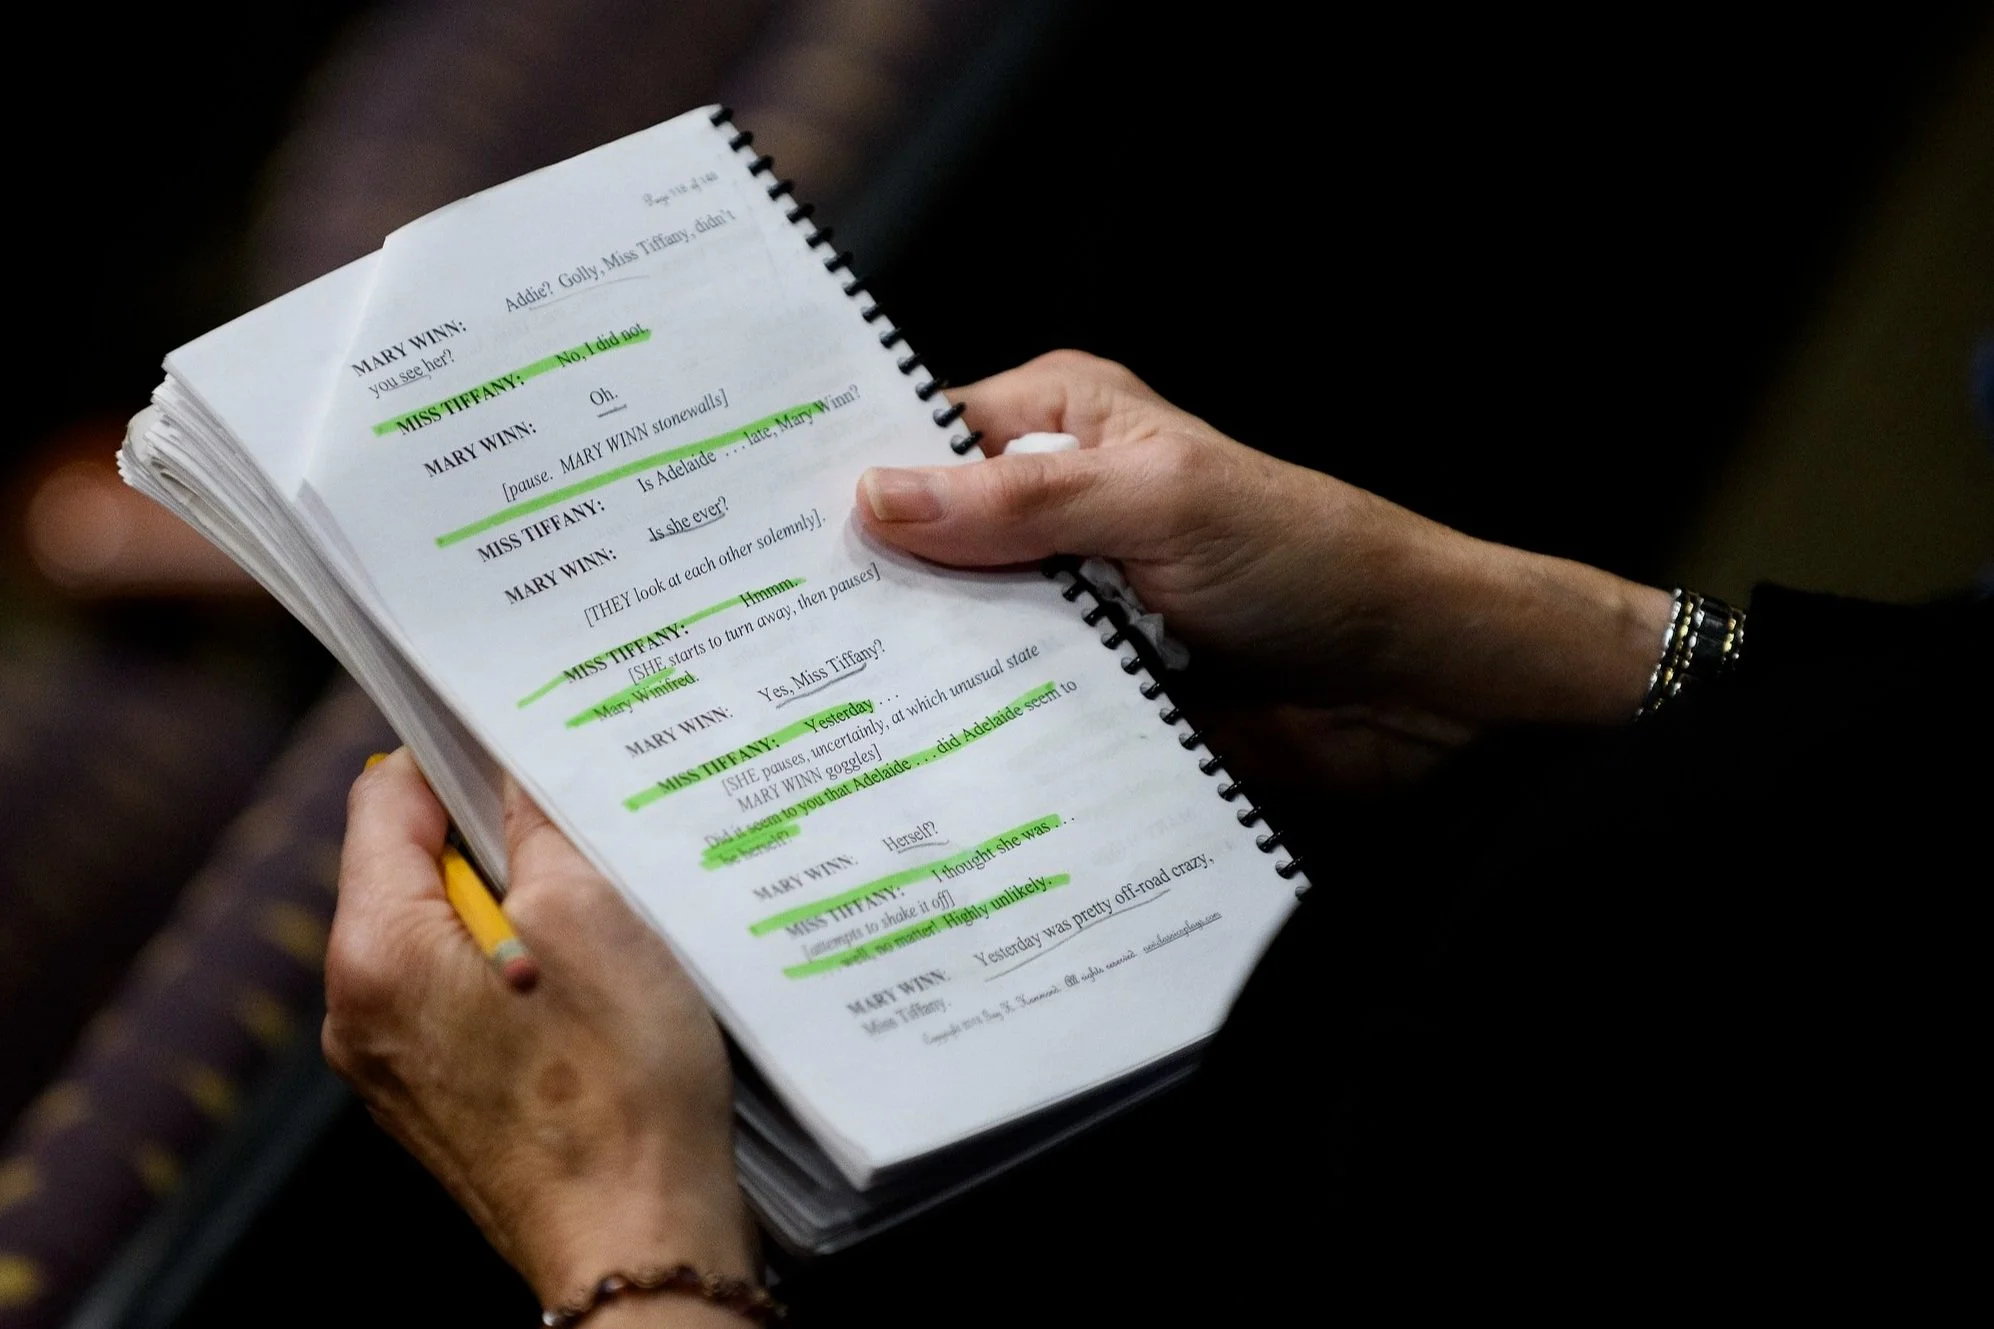 Page 118 of 148
MARY WINN: Addie? Golly, Miss Tiffany, didn't
you see her?
MISS TIFFANY: No, I did not.
MARY WINN: Oh.
[pause. MARY WINN stonewalls]
MISS TIFFANY: Is Adelaide . . . late, Mary Winn?
MARY WINN: Is she ever?
[THEY look at each other solemnly].
MISS TIFFANY: Hmmm.
[SHE starts to turn away, then pauses]
Mary Winifred.
MARY WINN: Yes, Miss Tiffany?
MISS TIFFANY: Yesterday . . .
[SHE pauses, uncertainly, at which unusual state
MARY WINN goggles]
Did it seem to you that Adelaide . . . did Adelaide seem to
be herself?
MARY WINN: Herself?
MISS TIFFANY: I thought she was . . .
[attempts to shake it off]
well, no matter! Highly unlikely.
MARY WINN: Yesterday was pretty off-road crazy,
Miss Tiffany.
Copyright All rights reserved.